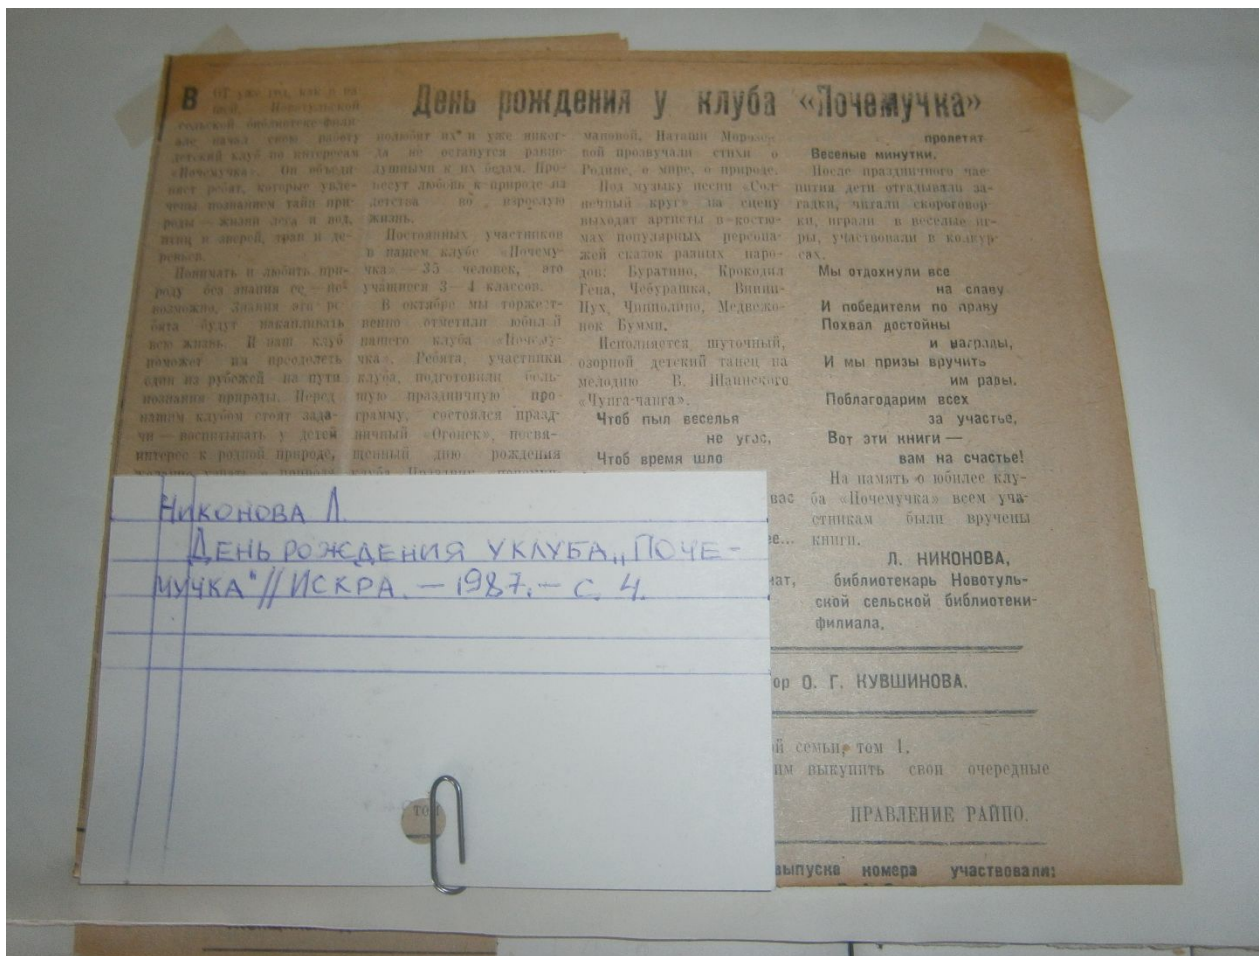 День рождения у клуба «Почемучка»
Вот уже год, как в на-
шей, Новотульской
сельской библиотеке-фили-
але начал свою работу
детский клуб по интересам
«Почемучка». Он объеди-
няет ребят, которые увле-
чены познанием тайн при-
роды — жизни леса и вод,
птиц и зверей, трав и де-
ревьев.
Понимать и любить при-
роду без знания ее — не-
возможно. Знания эти ре-
бята будут накапливать
всю жизнь. И наш клуб
поможет им преодолеть
один из рубежей на пути
познания природы. Перед
нашим клубом стоят зада-
чи — воспитывать у детей
интерес к родной природе,
желание узнать
полюбят их и уже никог-
да не останутся равно-
душными к их бедам. Про-
несут любовь к природе из
детства во взрослую
жизнь.
Постоянных участников
в нашем клубе «Почему-
чка» — 35 человек, это
учащиеся 3—4 классов.
В октябре мы торжест-
венно отметили юбилей
нашего клуба «Почему-
чка». Ребята, участники
клуба, подготовили боль-
шую праздничную про-
грамму, состоялся празд-
ничный «Огонек», посвя-
щенный дню рождения
клуба.
мановой, Наташи Морозо-
вой прозвучали стихи о
Родине, о мире, о природе.
Под музыку песни «Сол-
нечный круг» на сцену
выходят артисты в костю-
мах популярных персона-
жей сказок разных наро-
дов: Буратино, Крокодил
Гена, Чебурашка, Винни-
Пух, Чипполино, Медвежо-
нок Бумми.
Исполняется шуточный,
озорной детский танец на
мелодию В. Шаинского
«Чунга-чанга».
Чтоб пыл веселья
не угас,
Чтоб время шло
вас
ее...
пролетят
Веселые минутки.
После праздничного чае-
пития дети отгадывали за-
гадки, читали скороговор-
ки, играли в веселые иг-
ры, участвовали в конкур-
сах.
Мы отдохнули все
на славу
И победители по праву
Похвал достойны
и награды,
И мы призы вручить
им рады.
Поблагодарим всех
за участье,
Вот эти книги —
вам на счастье!
На память о юбилее клу-
ба «Почемучка» всем уча-
стникам были вручены
книги.
Л. НИКОНОВА,
библиотекарь Новотуль-
ской сельской библиотеки-
филиала.
ор О. Г. КУВШИНОВА.
й семьи, том 1.
им выкупить свои очередные
ПРАВЛЕНИЕ РАЙПО.
выпуске номера участвовали:
Никонова Л.
День рождения у клуба „Поче-
мучка" // Искра. — 1987. — с. 4.
том